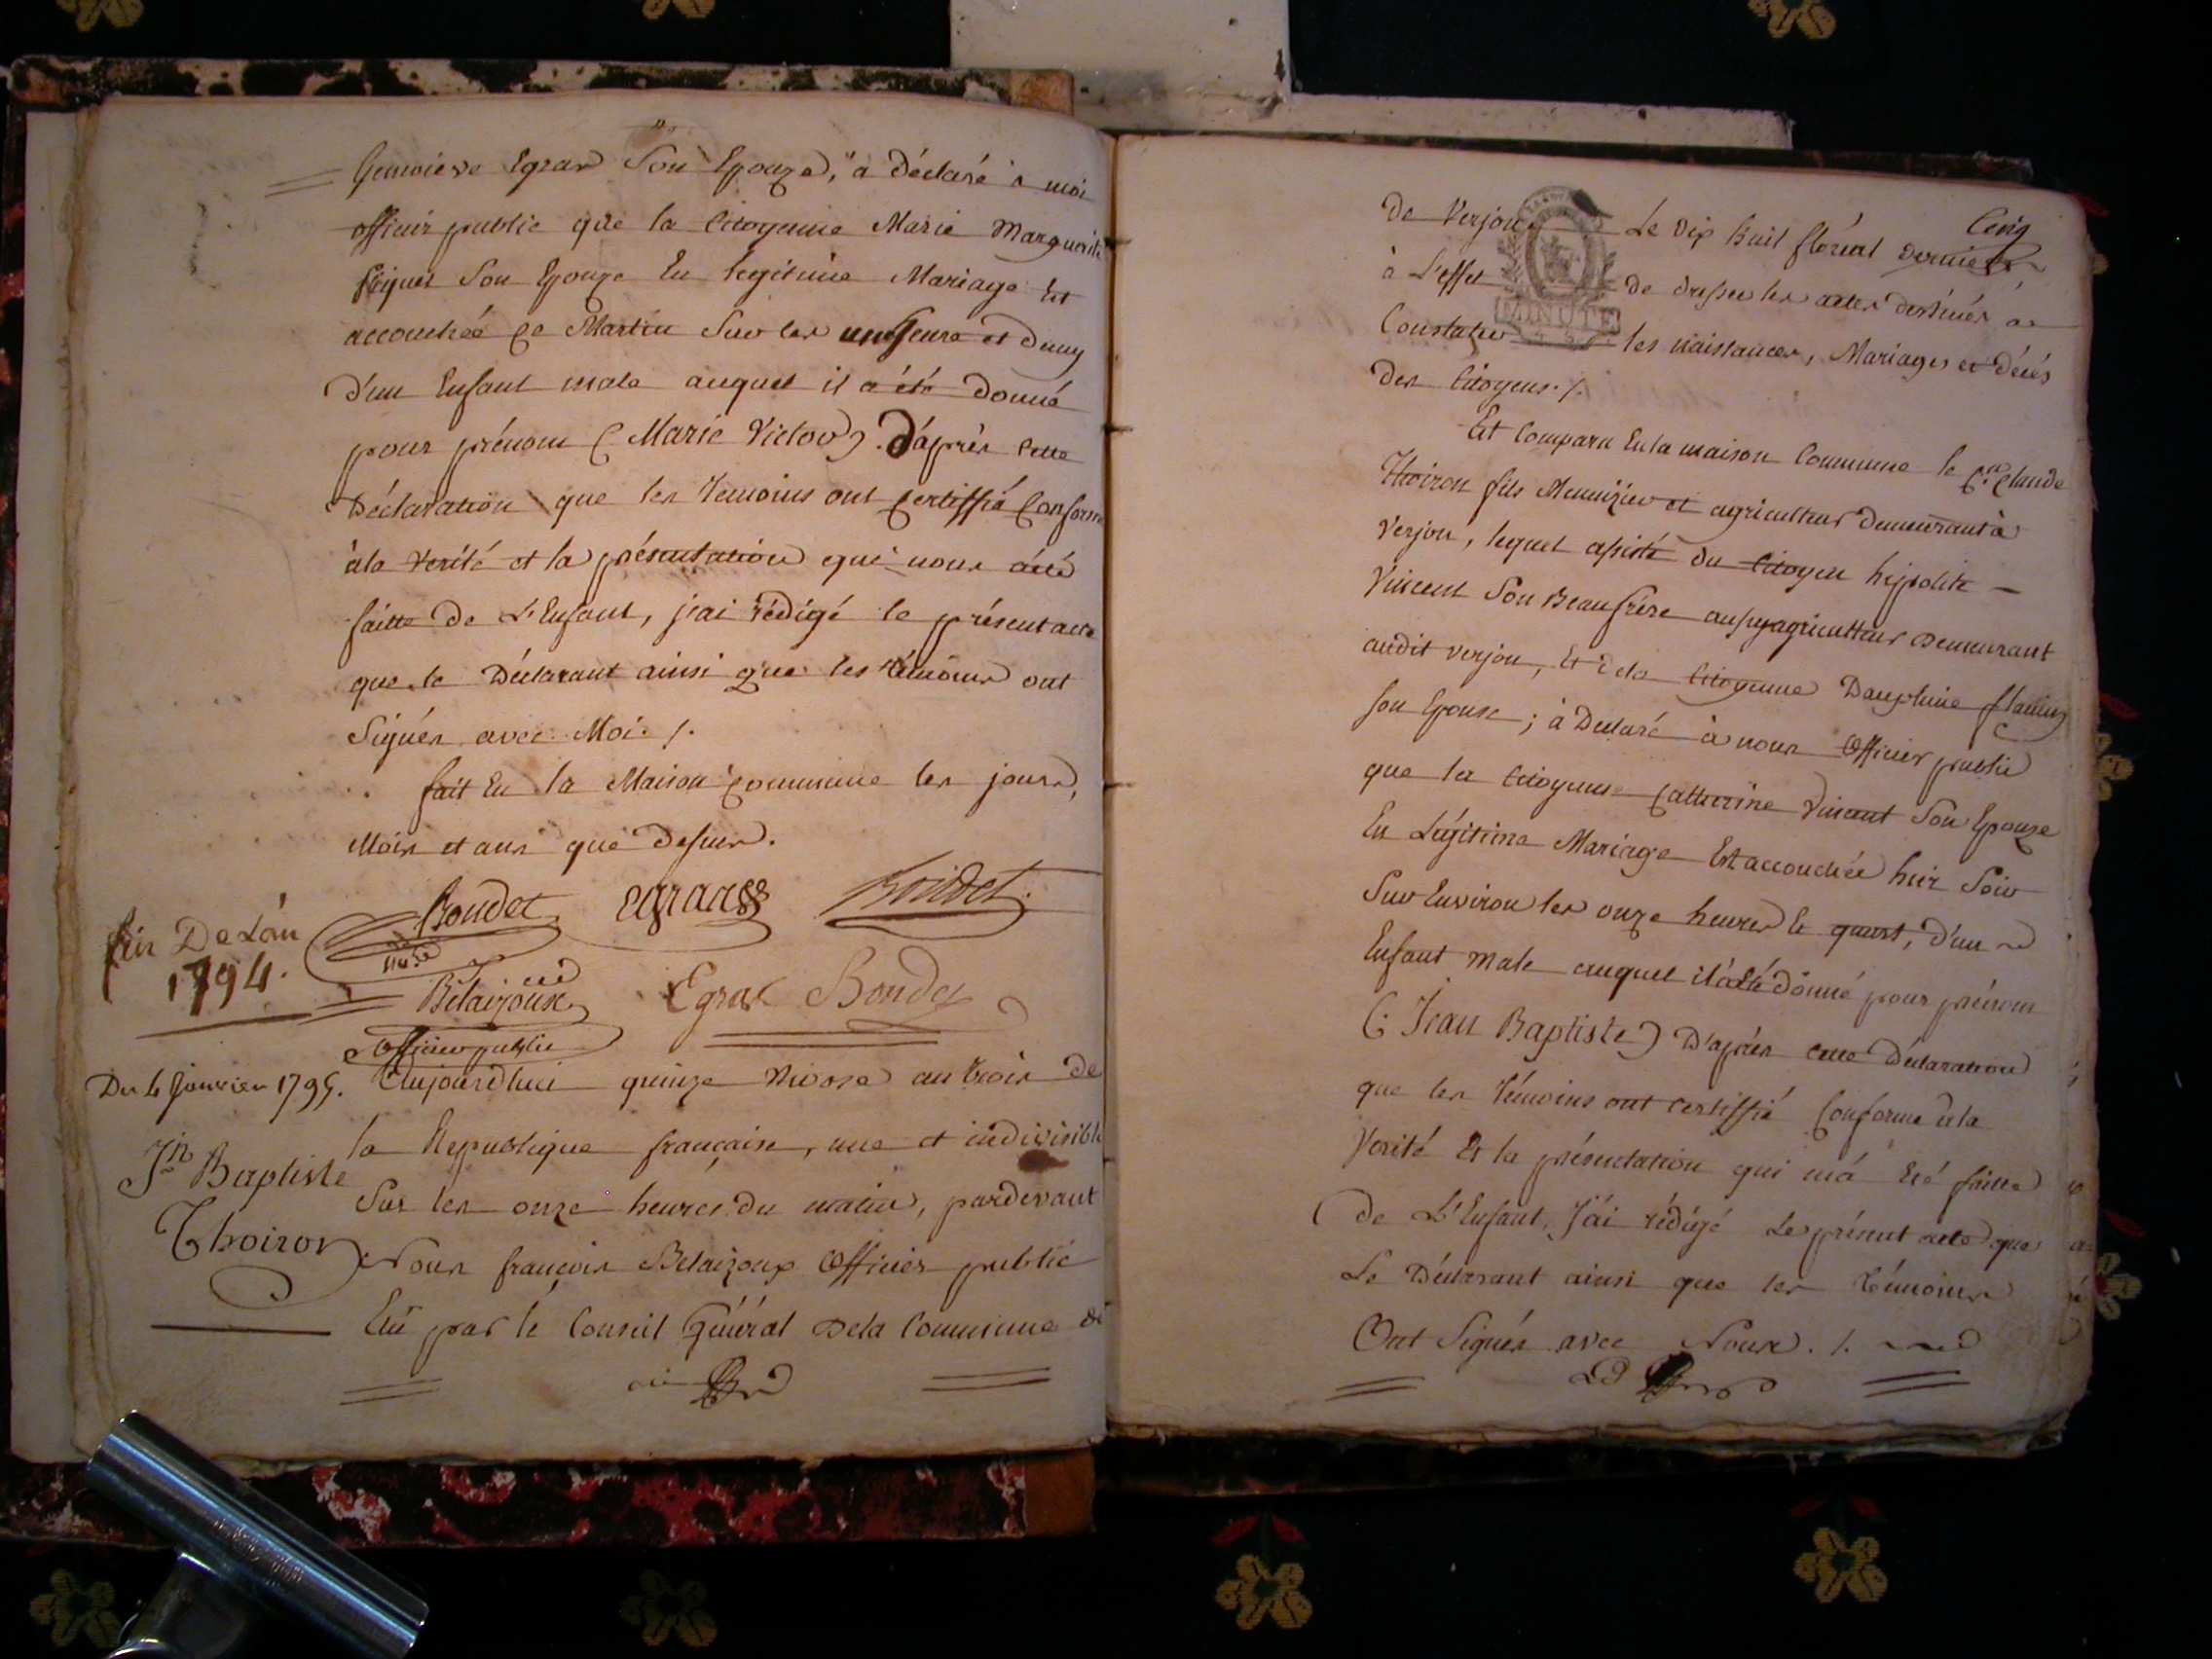 Genevieve Egrar Son Epouze, a déclaré à moi
officier public que la Citoyenne Marie Marguerite
Son Epouze En legitime Mariage Est
accouchée ce Martin Sur les et demy
d'un Enfant male auquel il a été donné
pour prénom (Marie Victor). D'après cette
Déclaration que les temoins ont Certiffié Conforme
à la Verité et la présentation qui nous a été
faitte de L'Enfant, j'ai rédigé le présent acte
que le Déclarant ainsi que les témoins ont
Signés avec Moi ./.
fait En la Maison Commune les jours,
Mois et ans que dessus.
Bondet Egrar Boudet
fin De L'an
1794.
Bélaizoux Egrar Bondet
Officier public
Du 4 Janvier 1795. Aujourd'huci quinze Nivose an trois de
la Republique française, une et indivisible
Jn Baptiste
Sur les onze heures du matin, pardevant
Thoiron
Nous françois Bélaizoux Officier public
Elû par le Conseil Général De la Commune de
Cinq
de Verjon Le dix huit floréal dernier
à L'effet de dresser les actes destinés à
MINUTE
Constater les naissances, Mariages et décés
des Citoyens ./.
Est Comparu En la maison Commune le Cen Claude
Thoiron fils Menuizier et agriculteur demeurant à
Verjon, lequel assisté du Citoyen hipolite
Vincent Son Beaufrère aussy agriculteur Demeurant
audit verjon, Et de la Citoyenne Dauphine
son Epouse; à Déclaré à nous Officier public
que la Citoyenne Catherine Vincent Son Epouze
En Légitime Mariage Est accouchée hier Soir
Sur Environ les onze heures le quart, d'un
Enfant male auquel il a été donné pour prénom
(Jean Baptiste) D'après cette Déclaration
que les témoins ont Certiffié Conforme à la
Verité Et la présentation qui m'a été faitte
de L'Enfant, J'ai rédigé Le présent acte que
Le Déclarant ainsi que les témoins
Ont Signés avec Nous ./.